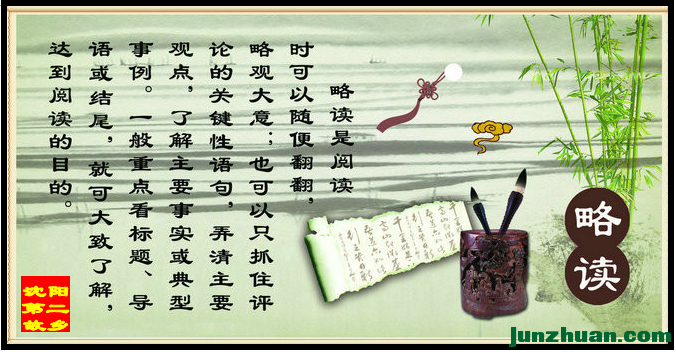 略读
略读是阅读
时可以随便翻翻,
略观大意;也可以只抓住评
论的关键性语句,弄清主要
观点,了解主要事实或典型
事例。一般重点看标题、导
语或结尾,就可大致了解,
达到阅读的目的。
沈阳
第二
故乡
junzhuan.com